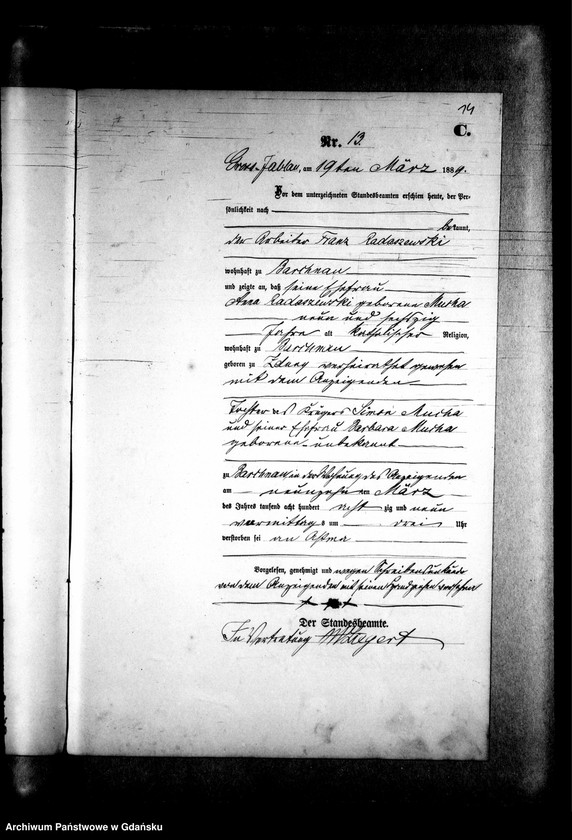 14
C.
Nr. 13.
Gross-Jablau, am 19ten März 1889.
Vor dem unterzeichneten Standesbeamten erschien heute, der Per-
sönlichkeit nach
bekannt,
der Arbeiter Franz Radaszewski
wohnhaft zu Barchnau
und zeigte an, daß seine Ehefrau
Anna Radaszewski geborene Muska
neun und sechszig
Jahre alt katholischer Religion,
wohnhaft zu Barchnau
geboren zu verheirathet gewesen
mit dem Anzeigenden
Tochter des Krügers Simon Muska
und seiner Ehefrau Barbara Muska
geborene unbekannt
zu Barchnau in der Wohnung des Anzeigenden
am neunzehn ten März
des Jahres tausend acht hundert acht zig und neun
vormittags um drei Uhr
verstorben sei an Asthma
Vorgelesen, genehmigt und wegen Schreibensunkunde
von dem Anzeigenden mit seinem Handzeichen versehen
+ + +
Der Standesbeamte.
In Vertretung
Archiwum Państwowe w Gdańsku